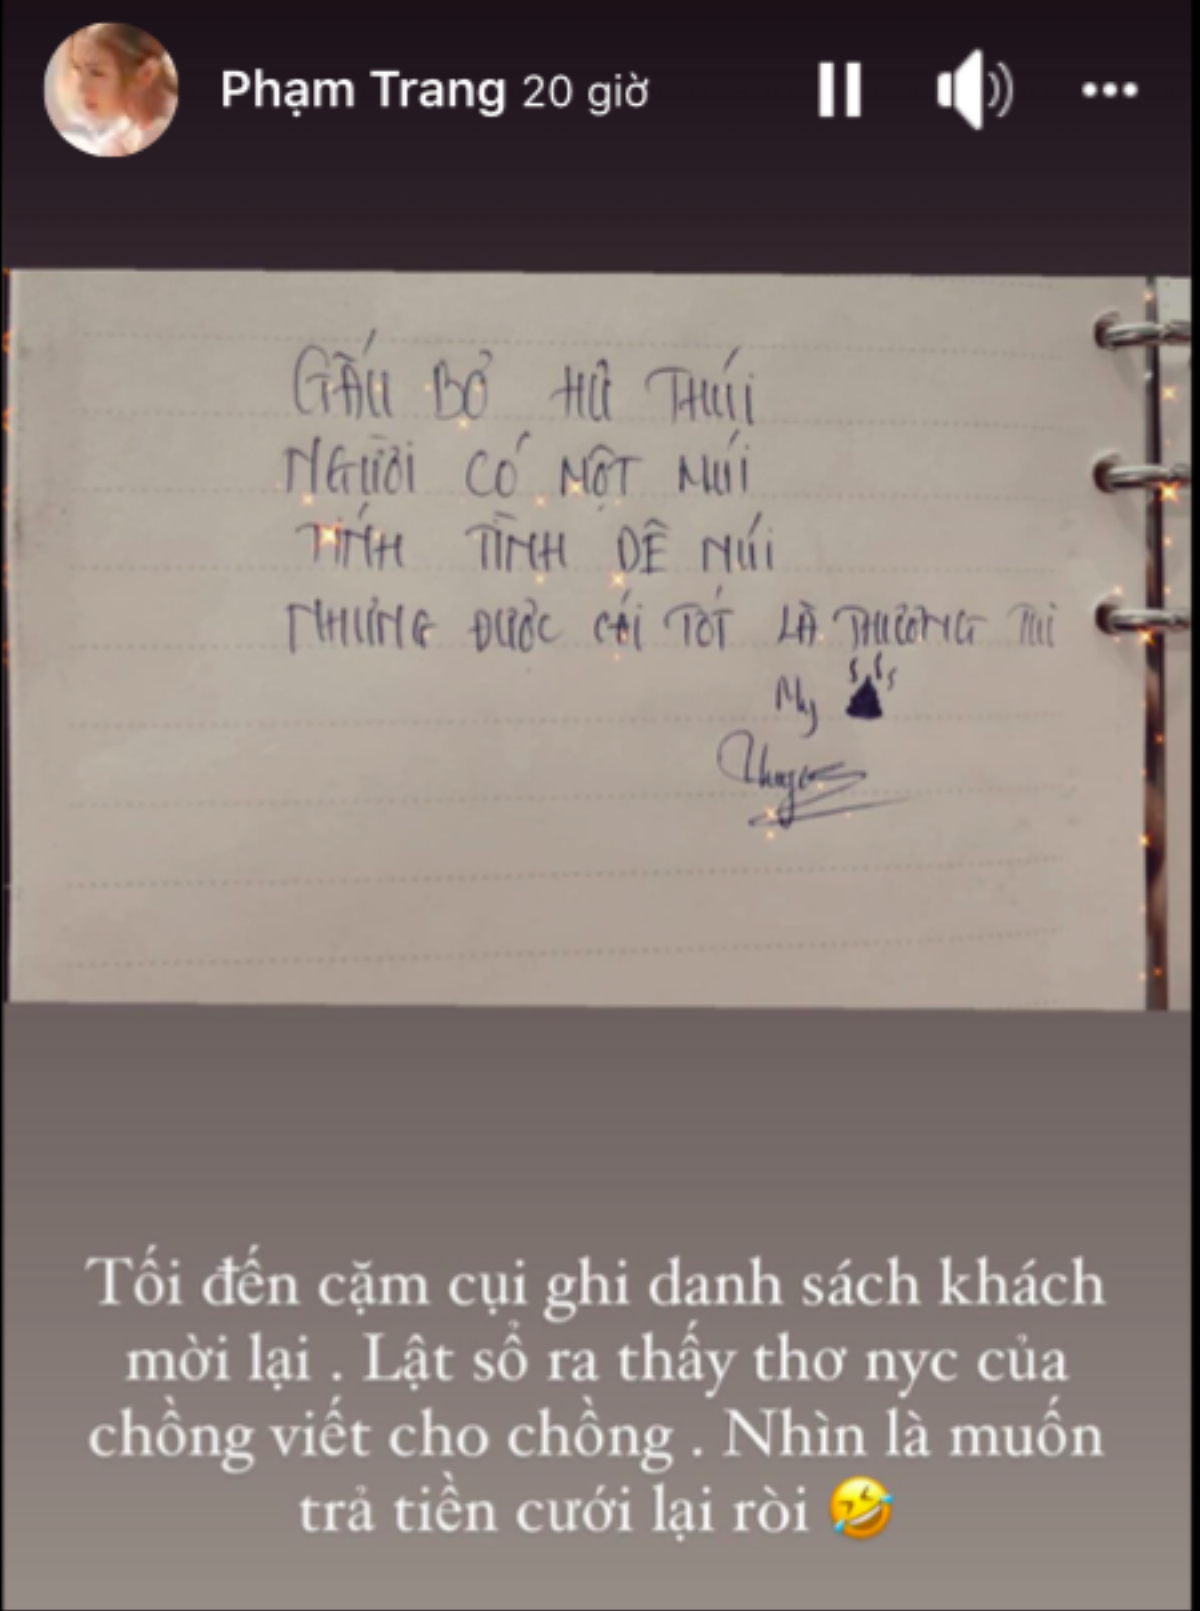 Phạm Trang 20 giờ
GẤU BỞ HƯ THÚI
NGƯỜI CÓ MỘT MÚI
TÍNH TÌNH DÊ NÚI
NHƯNG ĐƯỢC CÁI TỐT LÀ THƯƠNG TUI
My
Tối đến cặm cụi ghi danh sách khách
mời lại . Lật sổ ra thấy thơ nyc của
chồng viết cho chồng . Nhìn là muốn
trả tiền cưới lại ròi 🤣